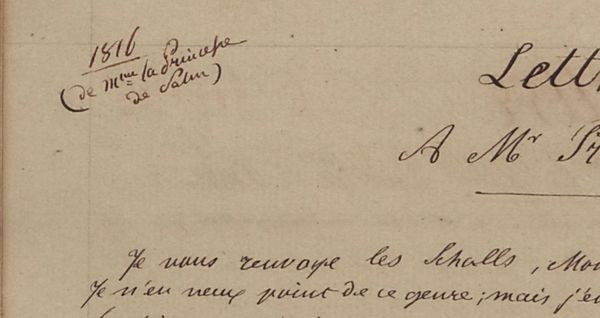 1816
(de Mme la Princesse
de Salm)
Lett
A Mr
Je vous renvoye les Schalls, Mon
Je n'en veux point de ce genre; mais j'en